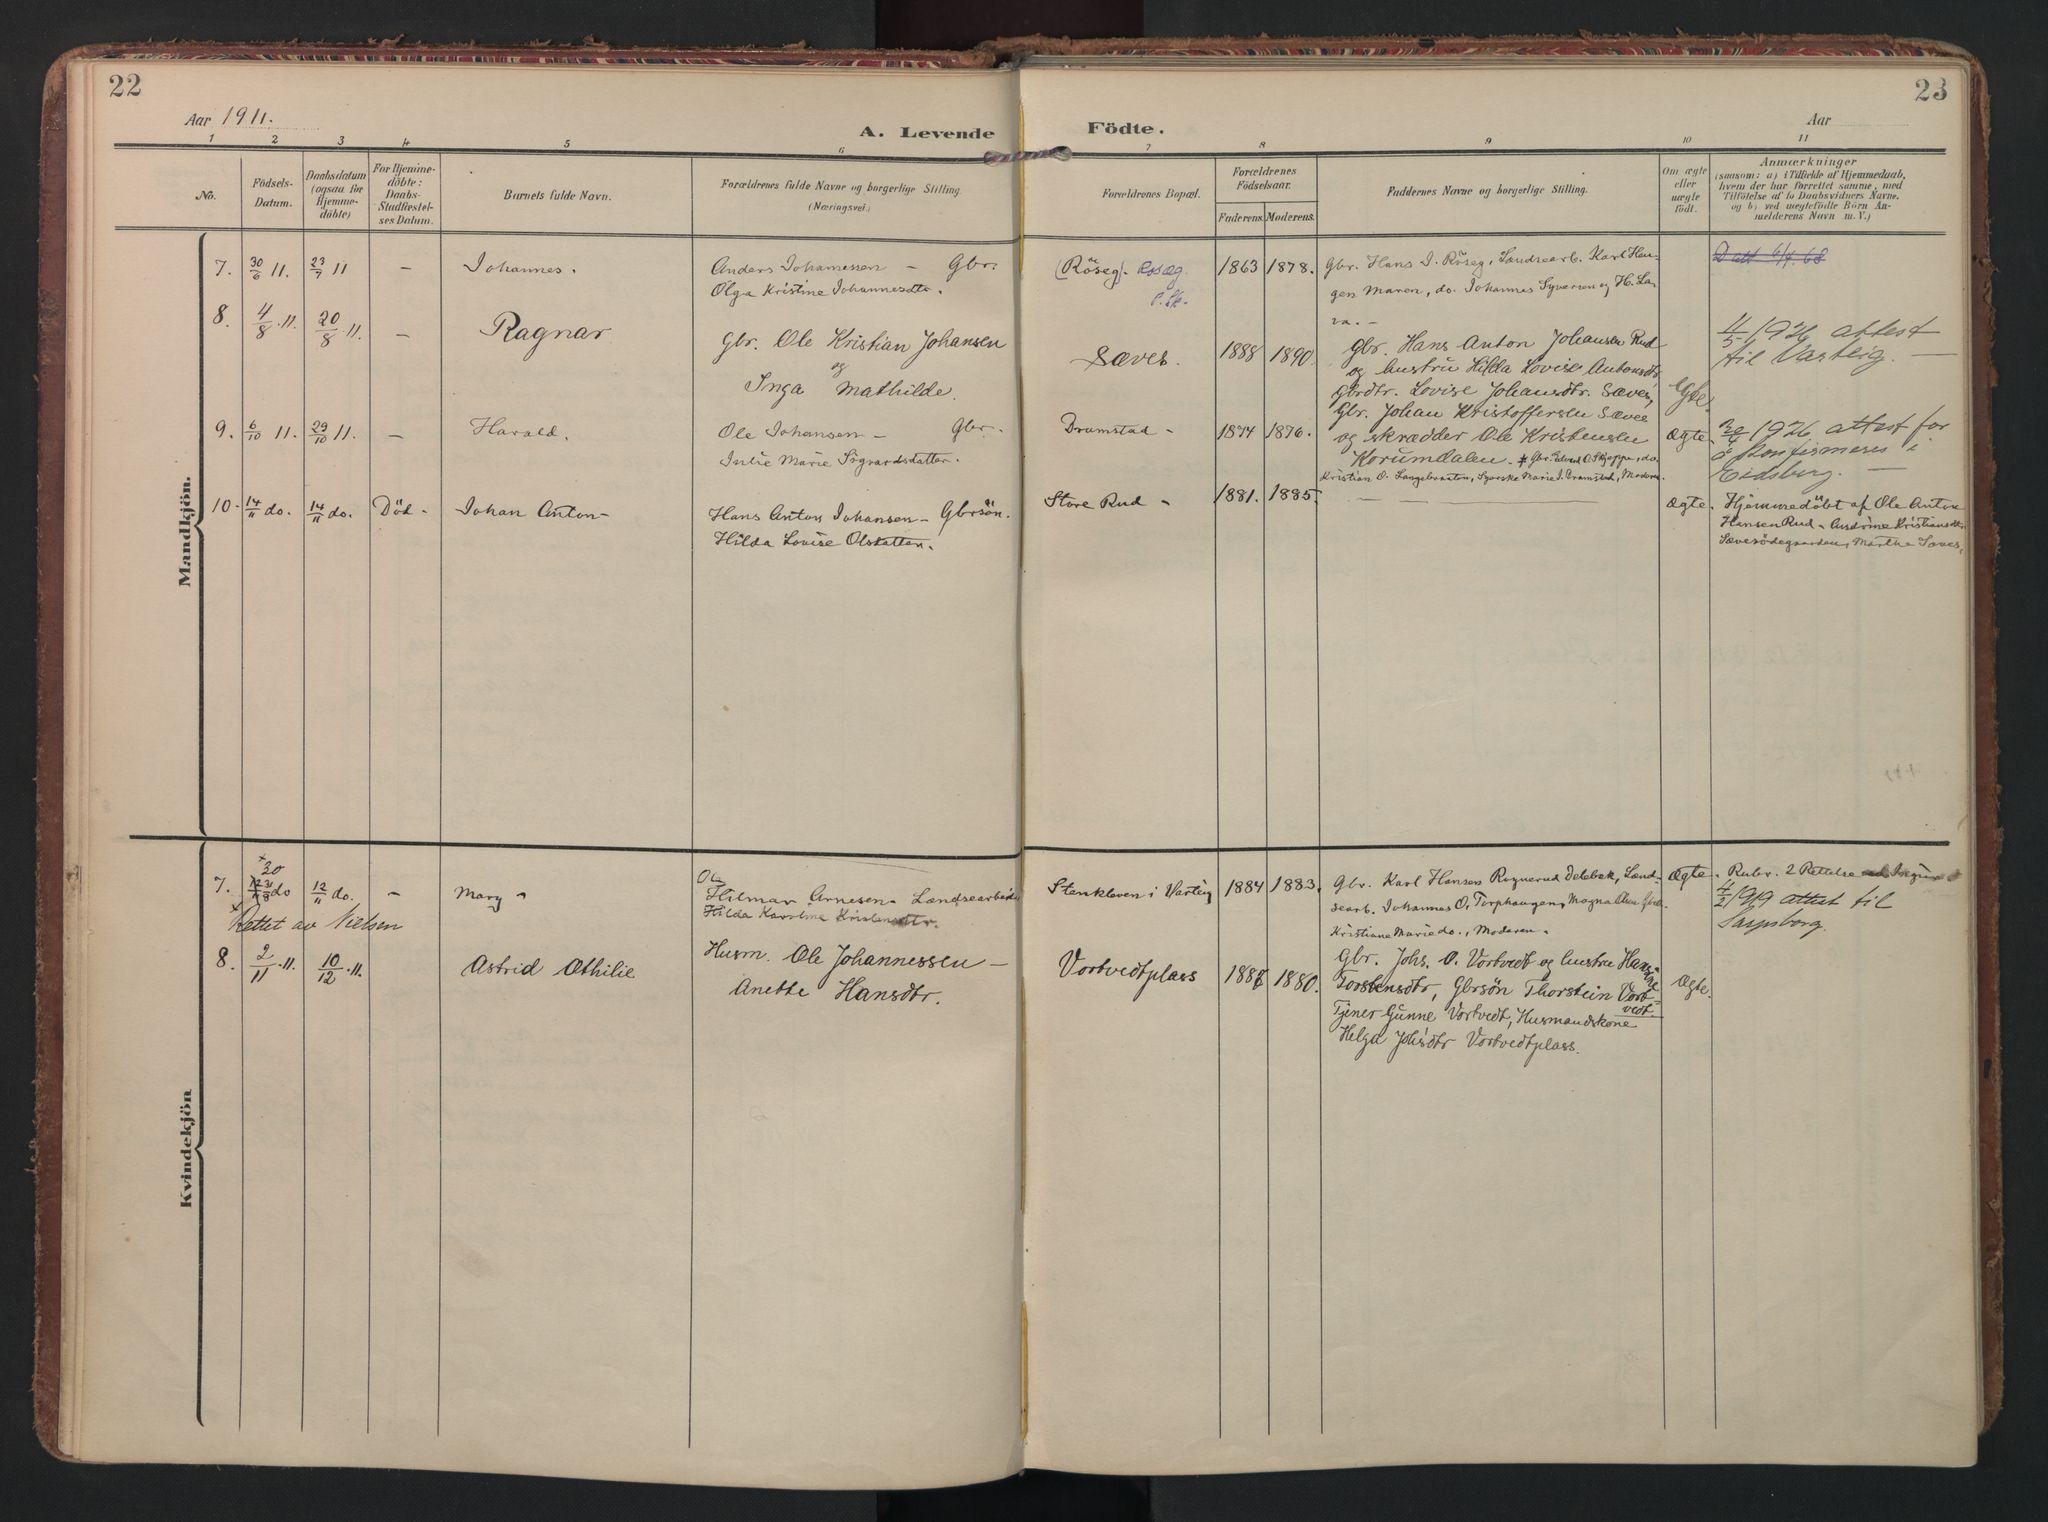 22
23
Aar 1911.
A. Levende Födte.
Aar
1 2 3 4 5 6 7 8 9 10 11
No.
Födsels-
Datum.
Daabsdatum
(ogsaa for
Hjemme-
döbte)
For Hjemme-
döbte:
Daabs-
Stadfæstel-
ses Datum.
Barnets fulde Navn.
Forældrenes fulde Navne og borgerlige Stilling.
(Næringsvei.)
Forældrenes Bopæl.
Forældrenes
Födselsaar.
Faderens. Moderens.
Faddernes Navne og borgerlige Stilling.
Om ægte
eller
uægte
födt.
Anmærkninger
(saasom: a) i Tilfælde af Hjemmedaab,
hvem der har forrettet samme, med
Tilföielse af to Daabsvidners Navne,
og b) ved uægtefödte Börn An-
melderens Navn m. V.)
Mandkjön.
7. 30/6 11. 23/7 11 – Johannes.
Anders Johannessen – Gbr.
Olga Kristine Johannesdtr.
(Röseg). Rosæg
1863 1878.
Gbr. Hans I. Röseg, Landsearb. Karl Hau-
gen Maren, do. Johannes Syversen og H. La-
va. –
D att 6/4. 68
8. 4/8. 11. 20/8. 11. – Ragnar
Gbr. Ole Kristian Johansen
og
Inga Mathilde
Sæves.
1888 1890.
Gbr. Hans Anton Johansen Rud
og hustru Hilda Lovise Antonsdtr.
Gbrdtr. Lovise Johansdtr. Sæves,
Gbr. Johan Kristoffersen Sæves
og skrædder Ole Kristensen
Korumdalen.
Ægte.
4/5 1926 attest
til Varteig. –
9. 6/10 11. 29/10 11. – Harald.
Ole Johansen – Gbr.
Julie Marie Sigvardsdatter.
Dramstad –
1874 1876.
Gbr. Edvard O. Skjeppe, do.
Kristian O. Langebraaten, Syerske Marie I. Dramstad, Moderen.
Ægte.
1926 attest for
å konfirmeres i
Eidsberg. –
10. 14/11 do. 14/11 do. Död – Johan Anton –
Hans Anton Johansen – Gbrsön.
Hilda Lovise Olsdatter.
Store Rud –
1881. 1885.
Ægte.
Hjemmedöbt af Ole Anton
Hansen Rud – Andrine Kristiansdtr.
Sævesödegaarden, Martha Sæves.
Kvindekjön
× 20
7. do 12/11 do. – Mary –
× Rettet av Nielsen
Hilmar Arnesen – Landsearbeider
Hilda Karoline Kristensdtr.
Stenkleven i Varteig
1884 1883.
Gbr. Karl Hansen Rognerud Delebek, Land-
searb. Johannes O. Torphaugen, Magna Olsen
Kristiane Marie do., Moderen.
Ægte.
Rubr. 2 Rettelse
4/2 1919 attest til
Sarpsborg.
8. 2/11. 11. 10/12. 11. Astrid Othilie
Husm. Ole Johannessen –
Anette Hansdtr.
Vortvedtplass
1880.
Gbr. Johs. O. Vortvedt og hustru Hansine
Torstensdtr, Gbrsön Thorstein Vort-
vedt
Tjener Gunne Vortvedt, Husmandskone
Helga Johsdtr Vortvedtplass.
Ægte.